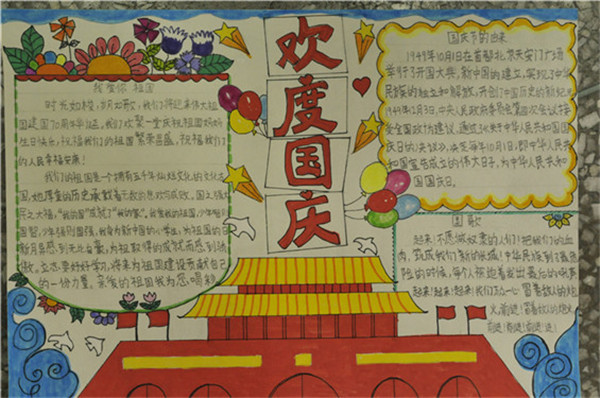 欢度国庆
我爱你 祖国
时光如梭,岁月如歌,我们将迎来伟大祖
国建国70周年华诞,我们欢聚一堂庆祝祖国妈妈
生日快乐,祝福我们的祖国繁荣昌盛,祝福我们
的人民幸福安康!
我们的祖国是一个拥有五千年灿烂文化的文化古
国,她厚重的历史承载着无数的悲欢和成败。国上强
国智,少年强则国强,
月勇感到无比自豪,为祖国取得的成就而感到骄
傲,立志要好好学习,将来为祖国建设贡献自己
的一份力量。亲爱的祖国我为您喝彩
国庆节的由来
1949年10月1日在首都北京天安门广场
举行了开国大典,新中国的建立,实现了中华
民族的独立和解放,开创了中国历史的新纪元
1949年12月3日,中央人民政府委员会第四次会议接
受全国政协建议,通过《关于中华人民共和国国
庆日的决议》,决定每年10月1日,即中华人民共和
国宣告成立的伟大日子,为中华人民共和
国国庆日。
国歌
起来!不愿做奴隶的人们!把我们的血
肉,筑成我们新的长城!中华民族到了最危
险的时候,每个人被迫着发出最后的吼声
起来!起来!起来!我们万众一心,冒着敌人的炮
火,前进!冒着敌人的炮火,
前进!前进!前进!进!